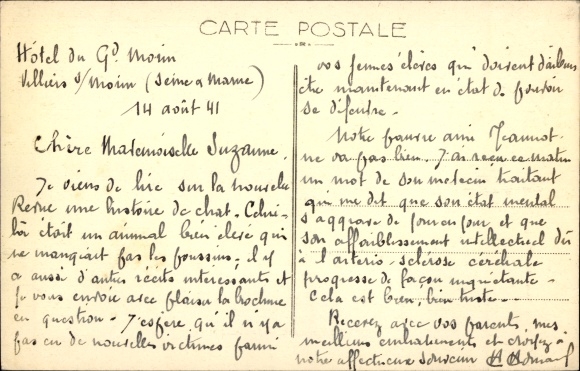 CARTE POSTALE
Hôtel du Gd Morin
Villiers s/Morin (Seine & Marne)
14 août 41
Chère Mademoiselle Suzanne,
Je viens de lire sur la nouvelle
Revue une histoire de chat. Celui-
là était un animal bien élevé qui
ne mangiait pas les poussins. Il y
a aussi d'autres récits intéressants et
je vous envoie avec plaisir la brochure
en question. J'espère qu'il n'y a
pas eu de nouvelles victimes parmi
vos jeunes élèves qui doivent d'ailleurs
être maintenant en état de pouvoir
se défendre.
Notre pauvre ami Jeannot
ne va pas bien. J'ai reçu ce matin
un mot de son médecin traitant
qui me dit que son état mental
s'aggrave de jour en jour et que
son affaiblissement intellectuel dû
à l'artério-sclérose cérébrale
progresse de façon inquiétante.
Cela est bien, bien triste.
Recevez avec vos parents, mes
meilleurs embrassements et croyez à
notre affectueux souvenir